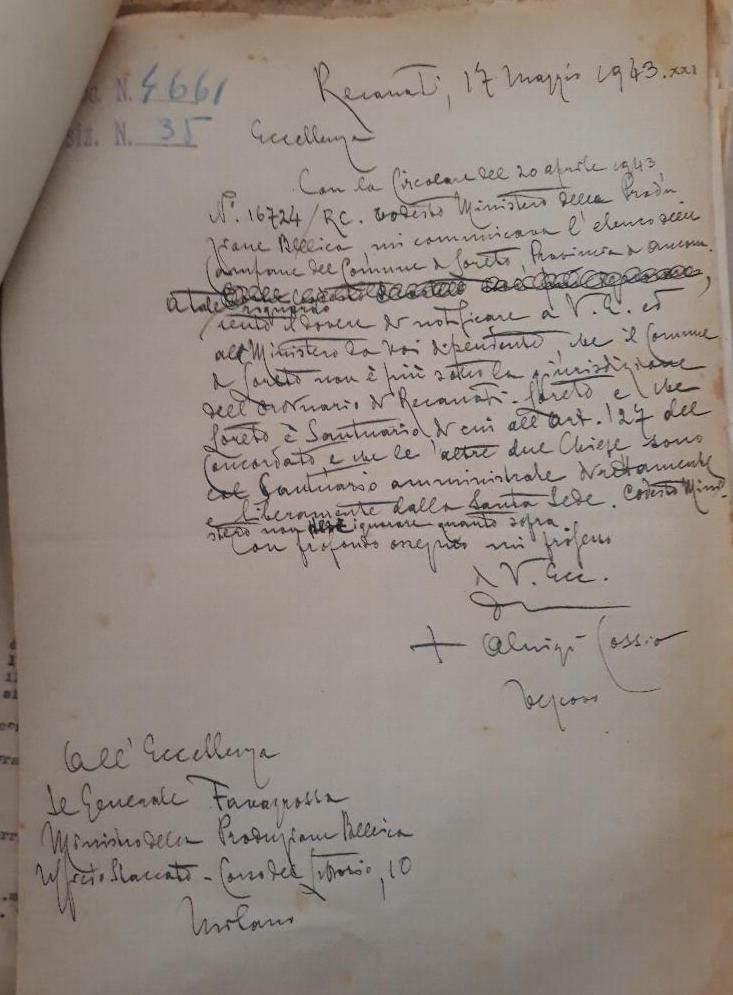 N. 4661
siz. N. 35
Recanati, 17 Maggio 1943. XXI
Eccellenza
Con la Circolare del 20 aprile 1943
N°. 16724 / RC. codesto Ministero della Produ
zione Bellica mi comunicava l'elenco delle
Campane del Comune di Loreto, Provincia di Ancona.
A tale riguardo
sento il dovere di notificare a V. E. ed
all Ministero da Voi dipendente che il Comune
di Loreto non è più sotto la giurisdizione
dell'Ordinario di Recanati-Loreto e che
Loreto è Santuario di cui all'art. 127 del
Concordato e che le altre due Chiese sono
col Santuario amministrate direttamente
e liberamente dalla Santa Sede. Codesto Mini-
stero non ignorare quanto sopra.
Con profondo ossequio mi professo
di V. Ecc.
+ Aluigi Cossio
Vescovo
All'Eccellenza
Il Generale Favagrossa
Ministro della Produzione Bellica
Ufficio Staccato - Corso del Littorio, 10
Milano